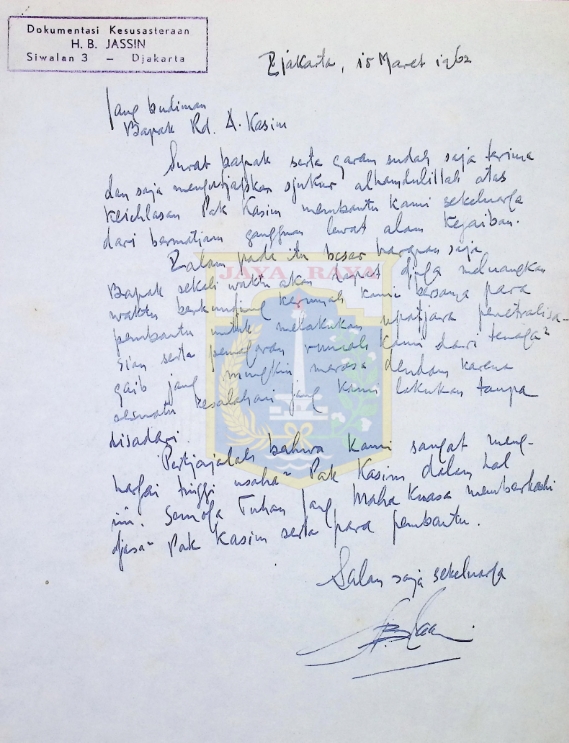 Dokumentasi Kesusasteraan
H. B. JASSIN
Siwalan 3 – Djakarta
Djakarta, 15 Maret 1962
Jang budiman
Bapak Rd. A. Kasim
Surat bapak serta garam sudah saja terima
dan saja mengutjapkan sjukur alhamdulillah atas
keichlasan Pak Kasim membantu kami sekeluarga
dari bermatjam gangguan lewat alam kegaiban.
Dalam pada itu besar harapan saja,
JAYA RAYA
Bapak sekali waktu akan dapat djuga meluangkan
waktu berkundjung kerumah kami bersama para
pembantu untuk melakukan upatjara penetralisa-
sian serta pemagaran rumah kami dari tenaga²
gaib jang mungkin merasa dendam karena
sesuatu kesalahan jang kami lakukan tanpa
disadari.
Pertjajalah bahwa kami sangat meng-
hargai tinggi usaha² Pak Kasim dalam hal
ini. Semoga Tuhan Jang Maha Kuasa memberkahi
djasa² Pak Kasim serta para pembantu.
Salam saja sekeluarga